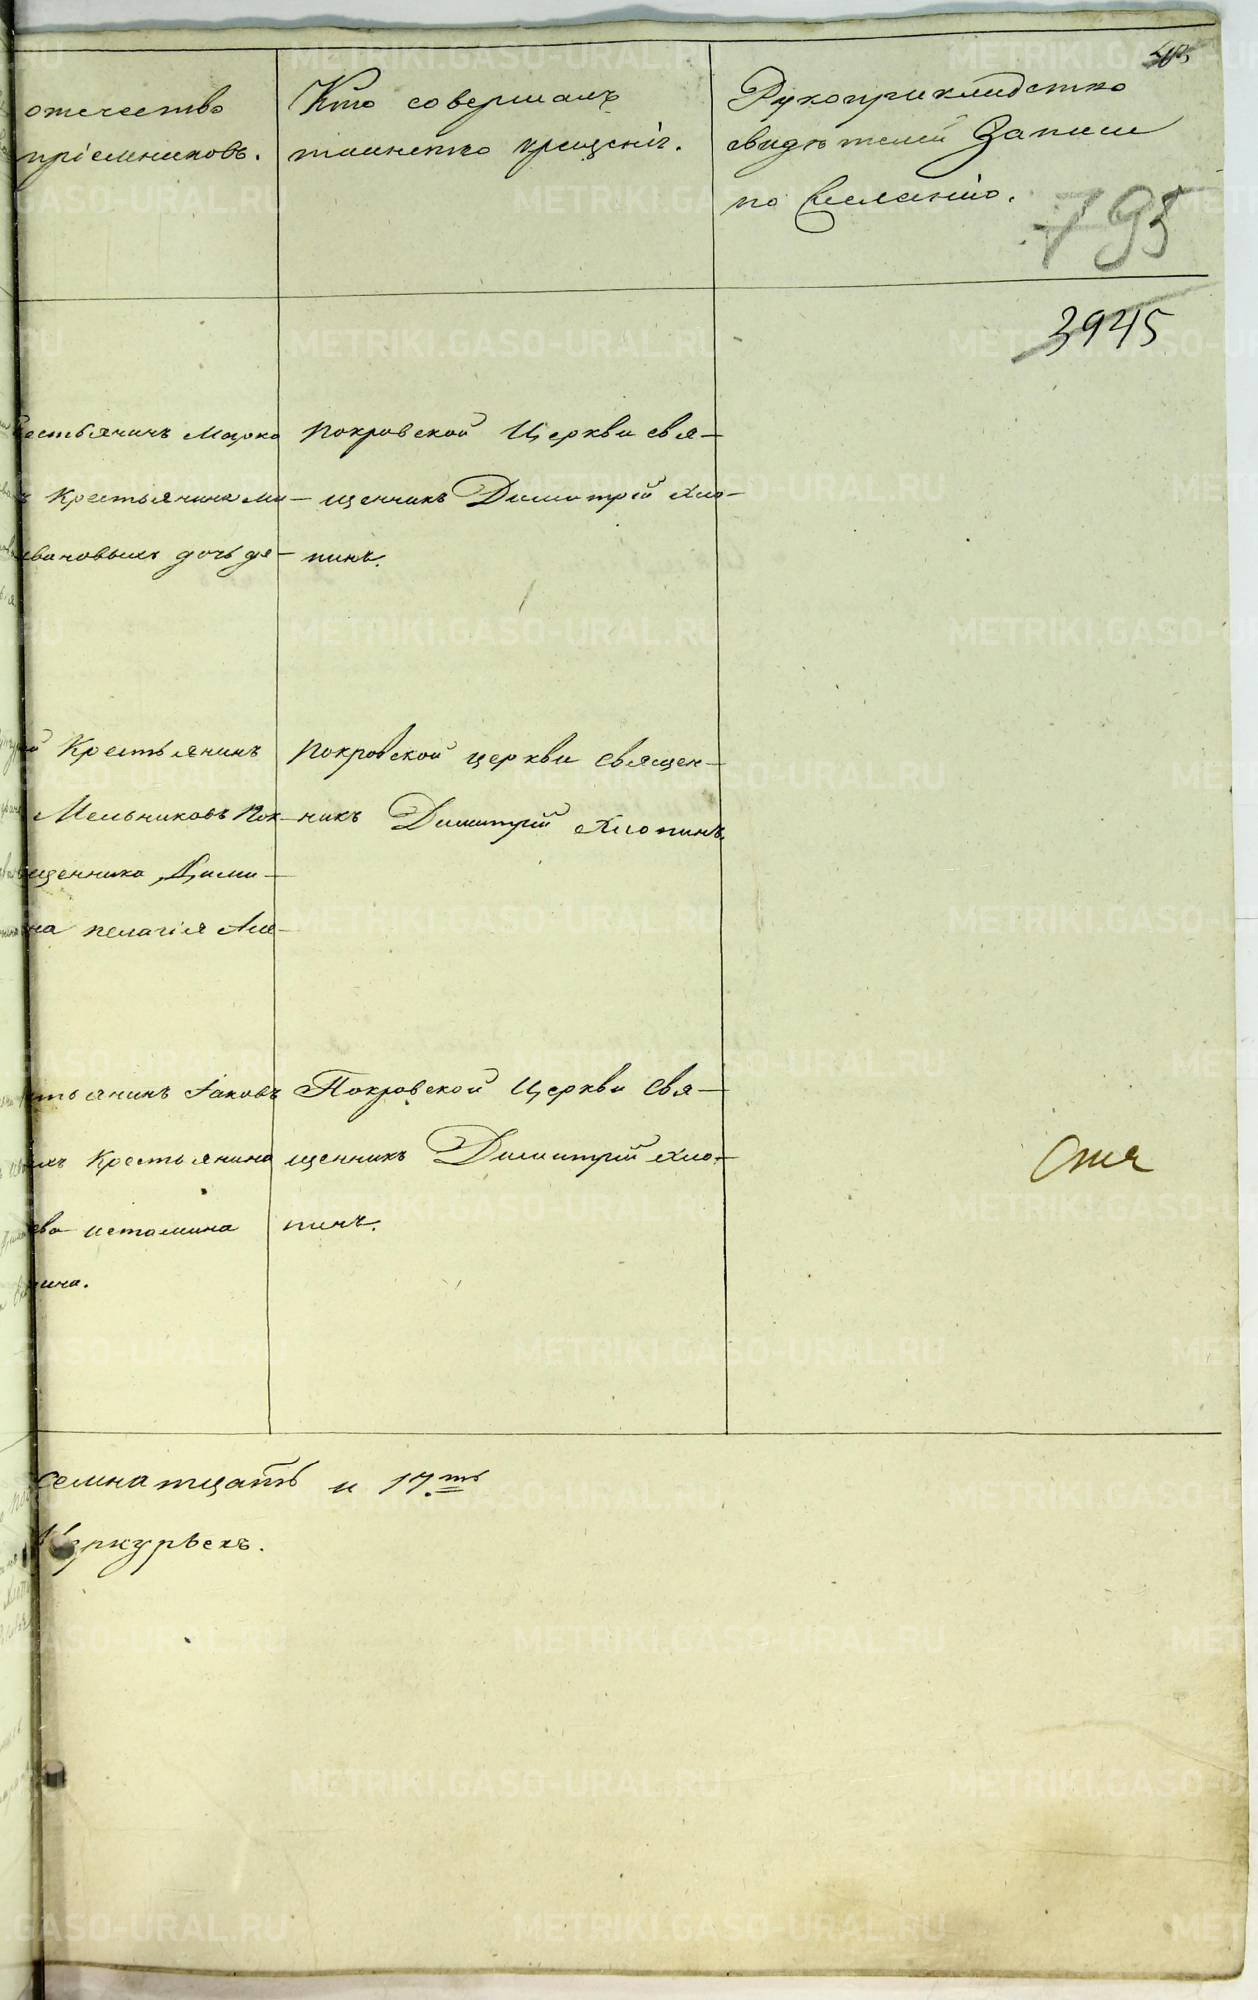 отчество
пріемниковъ.
Кто совершалъ
таинство крещенія.
Рукоприкладство
свидѣтелей записи
по желанію.
795
3945
крестьянинъ Марко
крестьянина Ми-
вановыхъ дочь дѣ-
Покровской Церкви свя-
щенникъ Димитрій Хло-
пинъ.
Крестьянинъ
Мельниковъ Пок-
щенника Дими-
на Пелагія Але-
Покровской церкви священ-
никъ Димитрій Хлопинъ
стьянинъ Іаковъ
хъ крестьянина
ева Истомина
Покровской Церкви Свя-
щенникъ Димитрій Хло-
пинъ.
семнатцать и 17.ть
Меркурьевъ.
METRIKI.GASO-URAL.RU